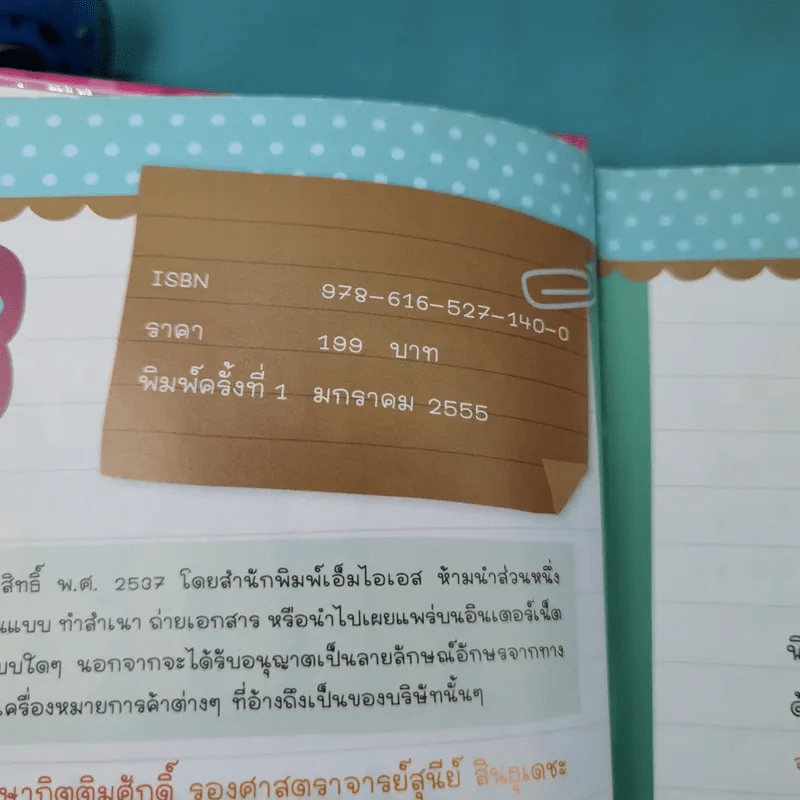 ISBN 978-616-527-140-0
ราคา 199 บาท
พิมพ์ครั้งที่ 1 มกราคม 2555
สิทธิ์ พ.ศ. 2537 โดยสำนักพิมพ์เอ็มไอเอส ห้ามนำส่วนหนึ่ง
นแบบ ทำสำเนา ถ่ายเอกสาร หรือนำไปเผยแพร่บนอินเตอร์เน็ต
บบใดๆ นอกจากจะได้รับอนุญาตเป็นลายลักษณ์อักษรจากทาง
เครื่องหมายการค้าต่างๆ ที่อ้างถึงเป็นของบริษัทนั้นๆ
ษากิตติมศักดิ์ รองศาสตราจารย์สุนีย์ สินธุเดชะ